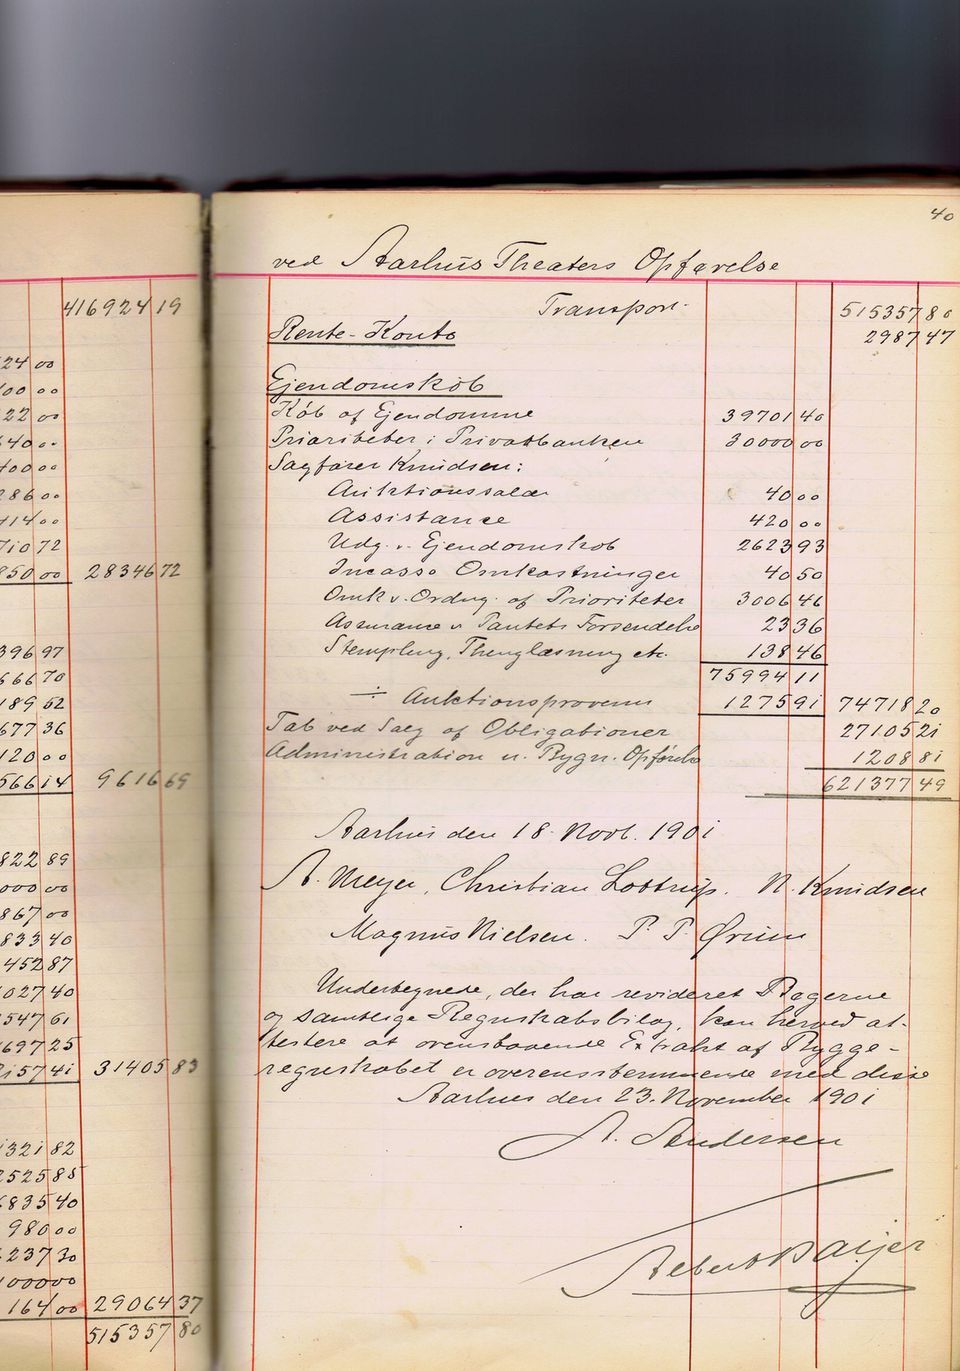 416924 19
24 00
00 00
22 00
40 00
400 00
286 00
414 00
71072
850 00 28346 72
396 97
666 70
189 52
677 36
120 00
566 14 9616 69
822 89
000 00
867 00
833 40
452 87
027 40
547 61
697 25
2157 41 31405 83
1321 82
2525 88
6835 40
980 00
237 30
1000 00
164 00 29064 37
515357 80
40
ved Aarhus Theaters Opførelse
Transport 515357 80
Rente-Konto 2987 47
Ejendomskøb
Køb af Ejendomme 39701 40
Prioriteter i Privatbanken 30000 00
Sagfører Knudsen:
Auktionssalær 40 00
Assistance 420 00
Udg. v. Ejendomskøb 2623 93
Incasso Omkostninger 40 50
Omk v. Ordng. af Prioriteter 3006 46
Assurance v Pantets Forsendelse 23 36
Stempling, Thinglæsning etc. 138 46
75994 11
÷ Auktionsprovenu 1275 91 74718 20
Tab ved Salg af Obligationer 27105 21
Administration v. Bygn. Opførelse 1208 81
621377 49
Aarhus den 18. Novb. 1901
A. Meyer, Christian Lottrup. N. Knudsen
Magnus Nielsen. P. P. Ørum
Undertegnede, der har revideret Bøgerne
og samtlige Regnskabsbilag, kan herved at-
testere at ovenstaaende Extrakt af Bygge-
regnskabet er overensstemmende med disse
Aarhus den 23. November 1901
A. Andersen